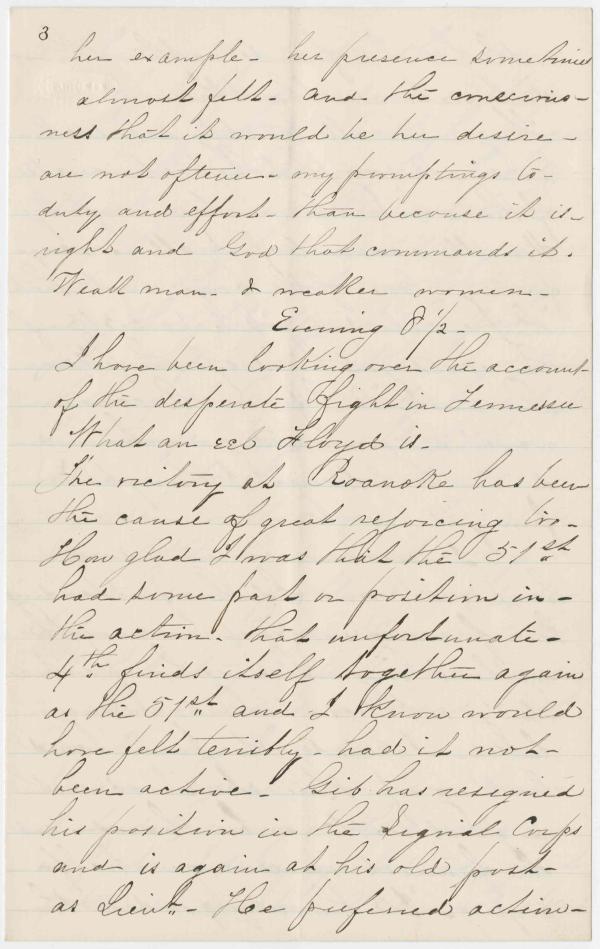 3
her example - her presence sometimes
almost felt - and the conscious-
ness that it would be her desire -
are not oftener - my promptings to -
duty and effort - than because it is -
right and God that commands it.
Weak man - & weaker women -
Evening 8 1/2 -
I have been looking over the account
of the desperate fight in Tennessee
What an eel Floyd is -
The victory at Roanoke has been
the cause of great rejoicing too -
How glad I was that the 51st
had some part or position in -
the action. that unfortunate -
4th finds itself together again
as the 51st and I know would
have felt terribly - had it not -
been active - Gib has resigned
his position in the Signal Corps
and is again at his old post -
as Lieut - He preferred action -